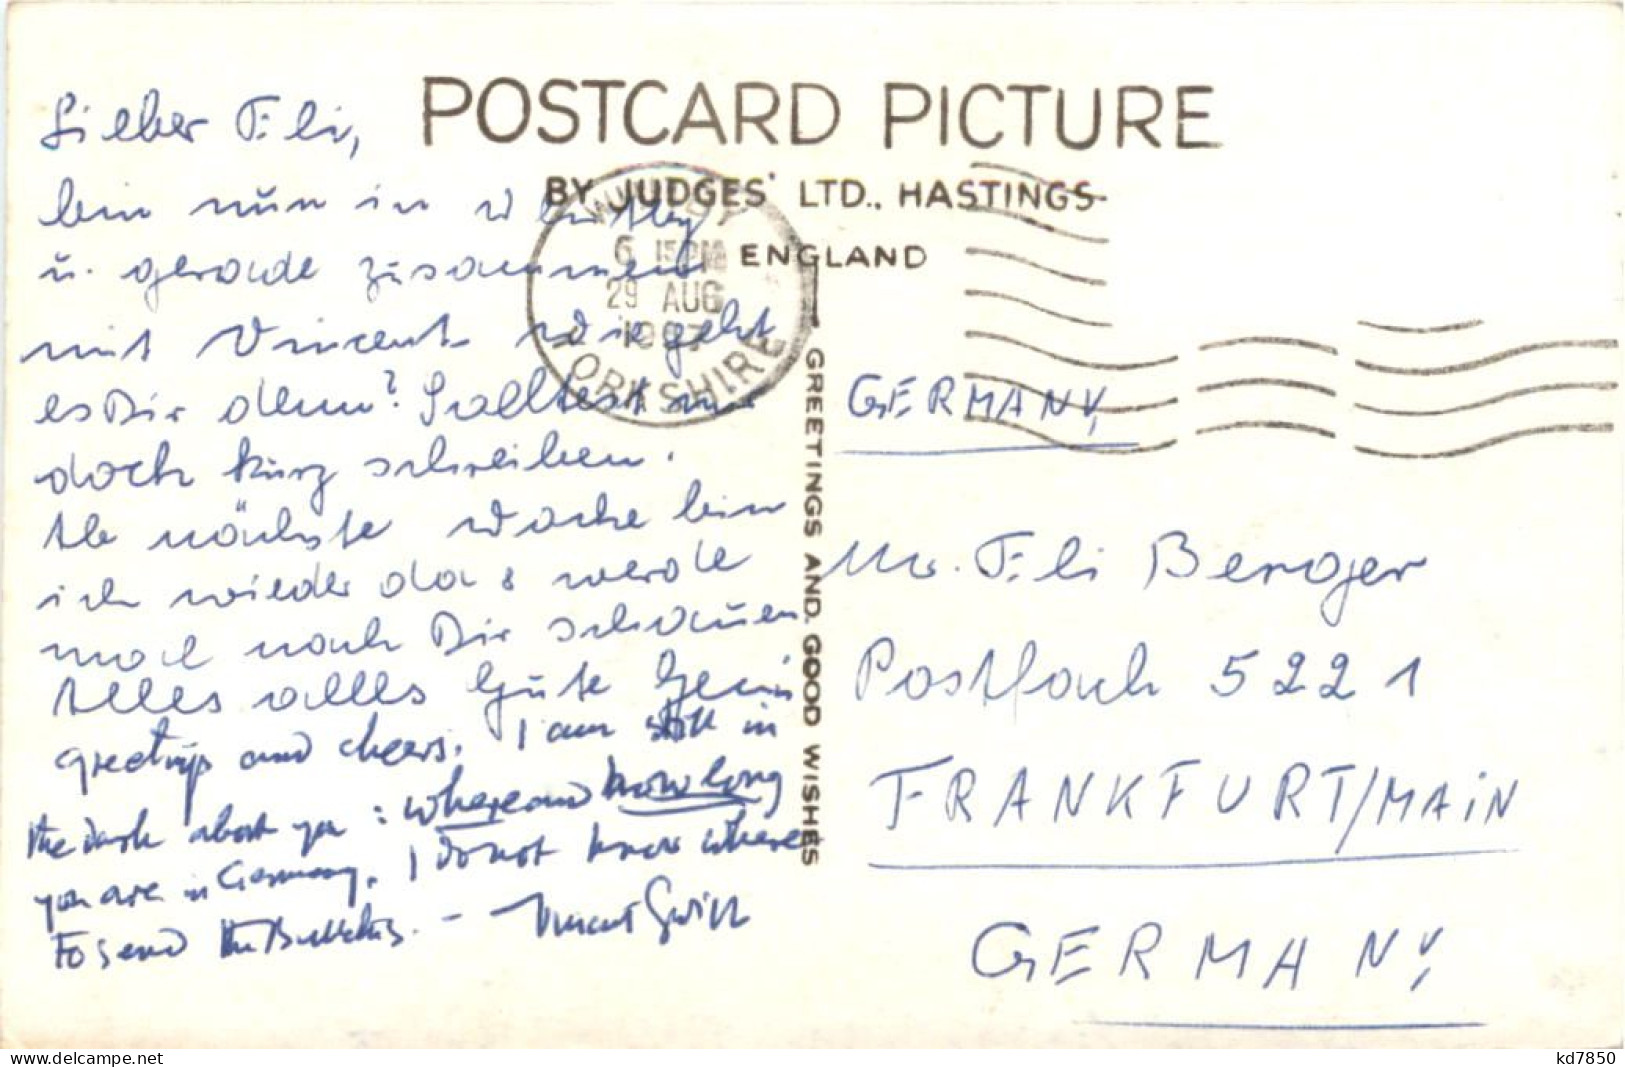 POSTCARD PICTURE
BY JUDGES' LTD., HASTINGS
ENGLAND
WHITBY
6 15 PM
29 AUG
YORKSHIRE
GREETINGS AND GOOD WISHES
Lieber Eli,
bin nun in Whitby
u. gerade zusammen
mit Vincent wie geht
es Dir denn? Solltest mir
doch kurz schreiben.
Ab nächste Woche bin
ich wieder da & werde
mal nach Dir schauen
Alles alles Gute
greetings and cheers. I am still in
the dark about you: where and how long
you are in Germany. I do not know where
to send the Bulletins. - Vincent
GERMANY,
Mr. Eli Berger
Postfach 5221
FRANKFURT/MAIN
GERMANY,
www.delcampe.net
kd7850